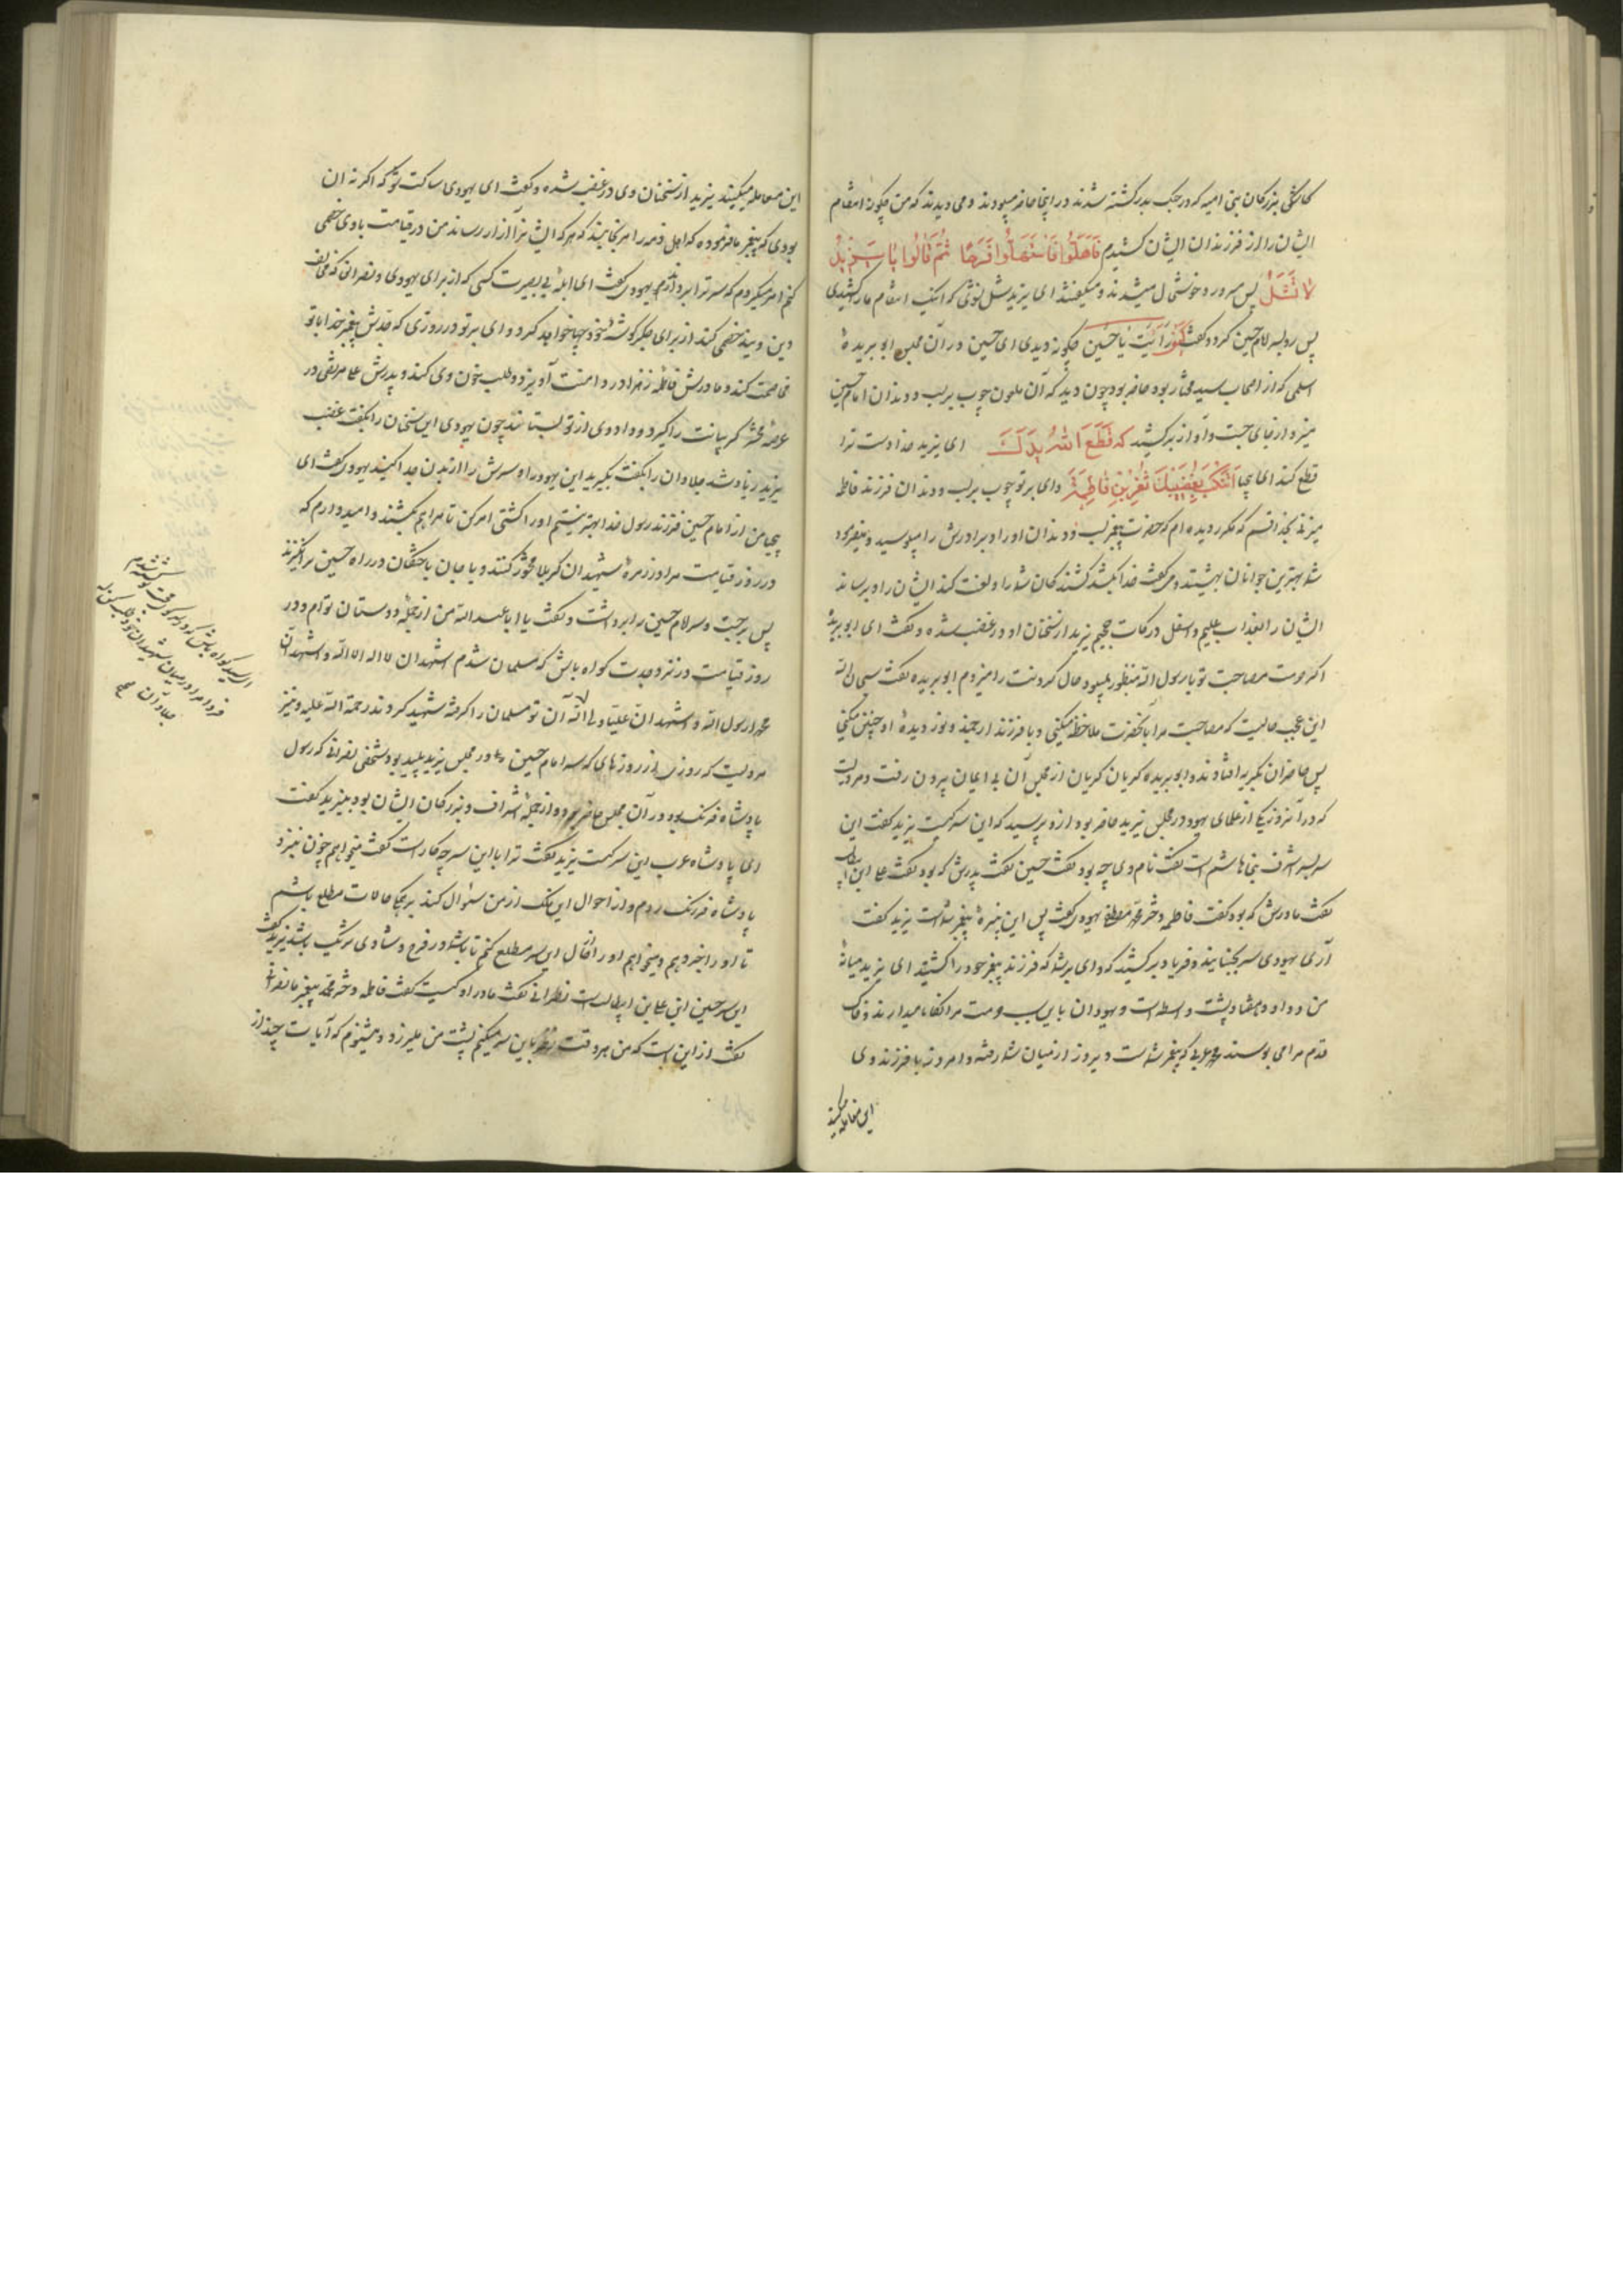 کاشکی بزرکان بنی امیه که در جنک بدر کشته شدند در اینجا حاضر میبودند و می دیدند که من چکونه انتقام
ایشان را از فرزندان ایشان کشیدم فَاَهَلّوُا فَاسْتَهَلّوُا فَرَحًا ثُمَّ قٰالُوا یٰا یَزٖیدُ
لٰا تَشَلْ پس مسرور و خوشحال میشدند و میکفتند ای یزید شل نشوی که نیک انتقام ما را کشیدی
پس رو بسر امام حسین کرد و کفت کَیْفَ رَأَیْتَ یٰا حُسَیْن چکونه دیدی ای حسین در آن مجلس ابو بریدهٔ
اسلمی که از اصحاب سید مختار بود حاضر بود چون دید که آن ملعون چوب بر لب و دندان امام حسین
میزد از جای جست و آواز بر کشید که قَطَعَ اللّٰهُ یَدَکَ ای یزید خدا دست ترا
قطع کند ای بیحیا اَتَنْکُتُ بِقَضٖیبِکَ ثَغْرَ ابْنِ فٰاطِمَةَ وای بر تو چوب بر لب و دندان فرزند فاطمه
میزنی بخدا قسم که مکرر دیده ام که حضرت پیغمبر لب و دندان او را و برادرش را میبوسید و میفرمود
شما بهترین جوانان بهشتید و میکفت خدا بکشد کشندکان شما را و لعنت کند ایشان را و برساند
ایشان را بعذاب علیم و اسفل درکات جحیم یزید از سخنان او در غضب شده و کفت ای ابو بریده
اکر حرمت مصاحبت تو با رسول الله منظور نمیبود حال کردنت را میزدم ابو بریده کفت سبحان الله
این عجب حالیست که مصاحبت مرا با آنحضرت ملاحظه میکنی و با فرزند ارجمند و نور دیدهٔ او چنین میکنی
پس حاضران بکریه افتادند و ابو بریده کریان کریان از مجلس آن بی ایمان بیرون رفت و مرویست
که در آنروز یکی از علمای یهود در مجلس یزید حاضر بود ازو پرسید که این سر کیست یزید کفت این
سر سر اشرف بنی هاشم است کفت نام وی چه بود کفت حسین کفت پدرش که بود کفت علی ابن ابیطالب
کفت مادرش که بود کفت فاطمه دختر محمد مصطفی یهودی کفت پس این نبیرهٔ پیغمبر شماست یزید کفت
آری یهودی سر بجنبانید و فریاد بر کشید که وای بر شما که فرزند پیغمبر خود را کشتید ای یزید میانهٔ
من و داود هفتاد پشت واسطه است و یهودان باین سبب حرمت مرا نکاه میدارند و خاک
قدم مرا می بوسند محمد عربی که پیغمبر شماست دیروز از میان شما رفته و امروز با فرزند وی
این معامله میکنید
این معامله میکنید یزید از سخنان وی در غضب شده و کفت ای یهودی ساکت شو که اکر نه ان
بودی که پیغمبر ما فرموده که اهل ذمه را مرنجانید که هر که ایشانرا آزار رساند من در قیامت با وی خصمی
کنم امر میکردم که سر ترا بردارند یهودی کفت ای ابله بی بصیرت کسی که از برای یهودی و نصرانی که مخالف
دین ویند خصمی کند از برای جکر کوشهٔ خود چها خواهد کرد و وای بر تو در روزی که جدش پیغمبر خدا با تو
مخاصمت کند و مادرش فاطمه زهرا در دامنت آویزد و طلب خون وی کند و پدرش علی مرتضی در
عرصهٔ محشر کریبانت را کیرد و داد وی از تو بستاند چون یهودی این سخنان را بکفت غضب
یزید زیاد شد جلادان را بکفت بکیرید این یهود را و سرش را از بدن جدا کنید یهودی کفت ای
بیحیا من از امام حسین فرزند رسول خدا بهتر نیستم او را کشتی امر کن تا مرا هم بکشند و امیدوارم که
در روز قیامت مرا در زمرهٔ شهیدان کربلا محشور کنند و با جان باختکان در راه حسین برانکیزند
پس برجست و سر امام حسین را برداشت و کفت یا ابا عبد الله من از جملهٔ دوستان توام و در
روز قیامت در نزد جدت کواه باش که مسلمان شدم اشهد ان لا اله الا الله و اشهد ان
محمدا رسول الله و اشهد ان علیا ولی الله آن نو مسلمان را کرفته شهید کردند رحمة الله علیه و نیز
مرویست که روزی از روزهای که سر امام حسین در مجلس یزید پلید بود شخصی نصرانی که رسول
پادشاه فرنک بود در آن مجلس حاضر بود و از جملهٔ اشراف و بزرکان ایشان بود بیزید کفت
ای پادشاه عرب این سر کیست یزید کفت ترا با این سر چه کار است کفت میخواهم چون بنزد
پادشاه فرنک روم و از احوال این ملک از من سؤال کند بر همه حالات مطلع باشم
تا او را خبر دهم و میخواهم او را از حال این سر مطلع کنم تا با شما در فرح و شادی شریک باشد یزید کفت
این سر حسین ابن علی ابن ابیطالب است نصرانی کفت مادر او کیست کفت فاطمه دختر محمد پیغمبر ما نصرانی
کفت از این است که من هر وقت نظر باین سر میکنم پشت من میلرزد و میشنوم که آیات چند از
فردا مرا در میان شهیدان خود طلب کن
جلادان